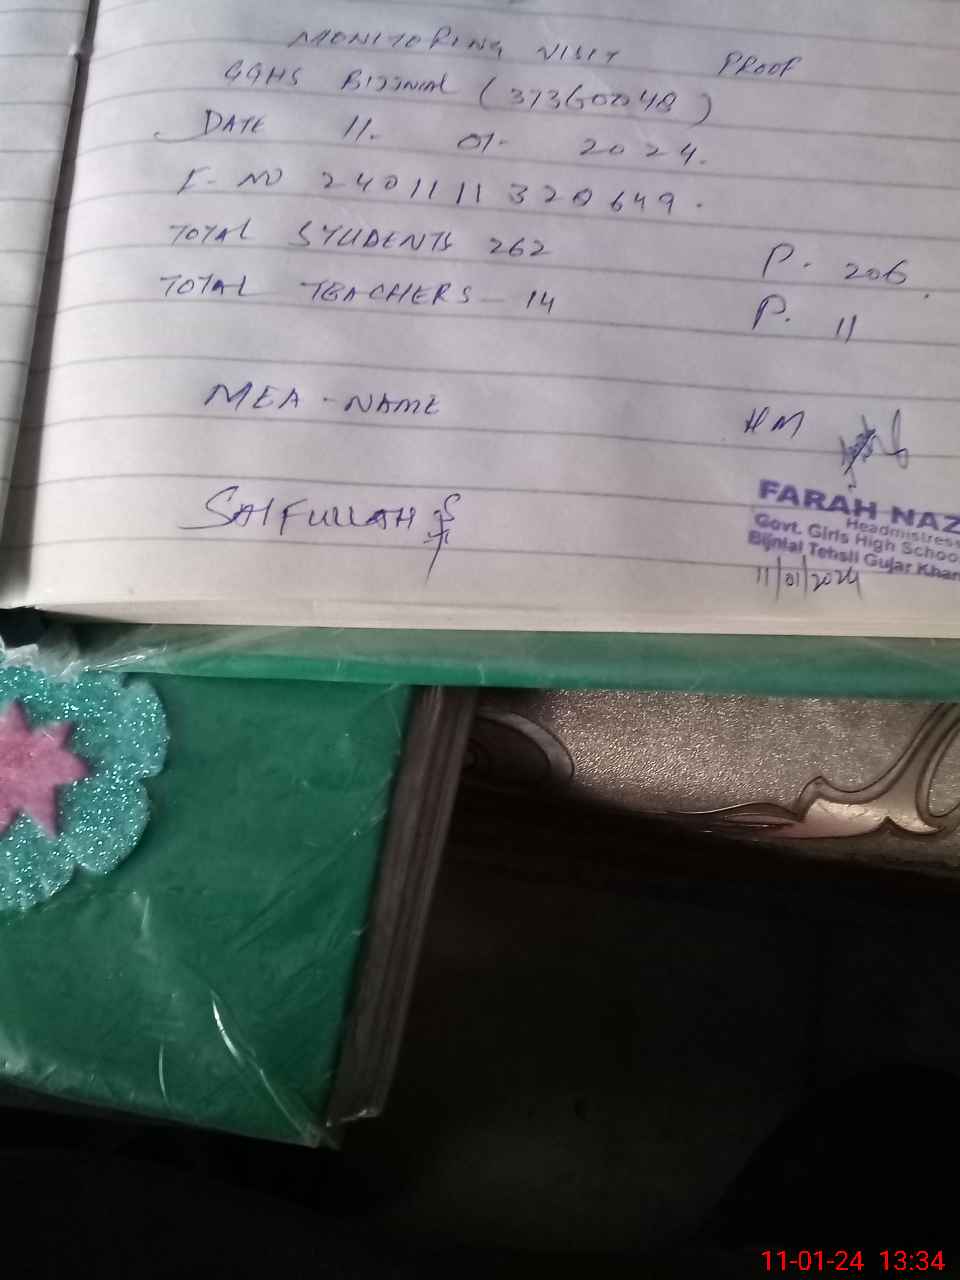 MONITORING VISIT PROOF
GGHS BIJNIAL (37360048)
DATE 11. 01. 2024.
F. NO 2401111320649.
TOTAL STUDENTS 262 P. 206.
TOTAL TEACHERS - 14 P. 11
MEA - NAME
HM
SAIFULLAH
FARAH NAZ
Headmistress
Govt. Girls High Schoo
Bijnial Tehsil Gujar Khan
11/01/2024
11-01-24 13:34